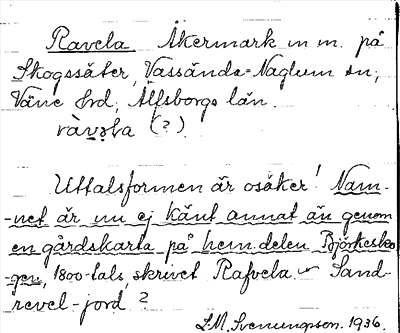 Ravela Åkermark m m. på
Skogssäter, Vassända-Naglum sn,
Väne hd, Älfsborgs län.
ràvela (?)
Uttalsformen är osäker! Nam-
-net är nu ej känt annat än genom
en gårdskarta på hem.delen Björkesko-
-gen, 1800-tals, skrivet Rafvela. Sand-
revel-jord?
L.M. Svenungson. 1936.